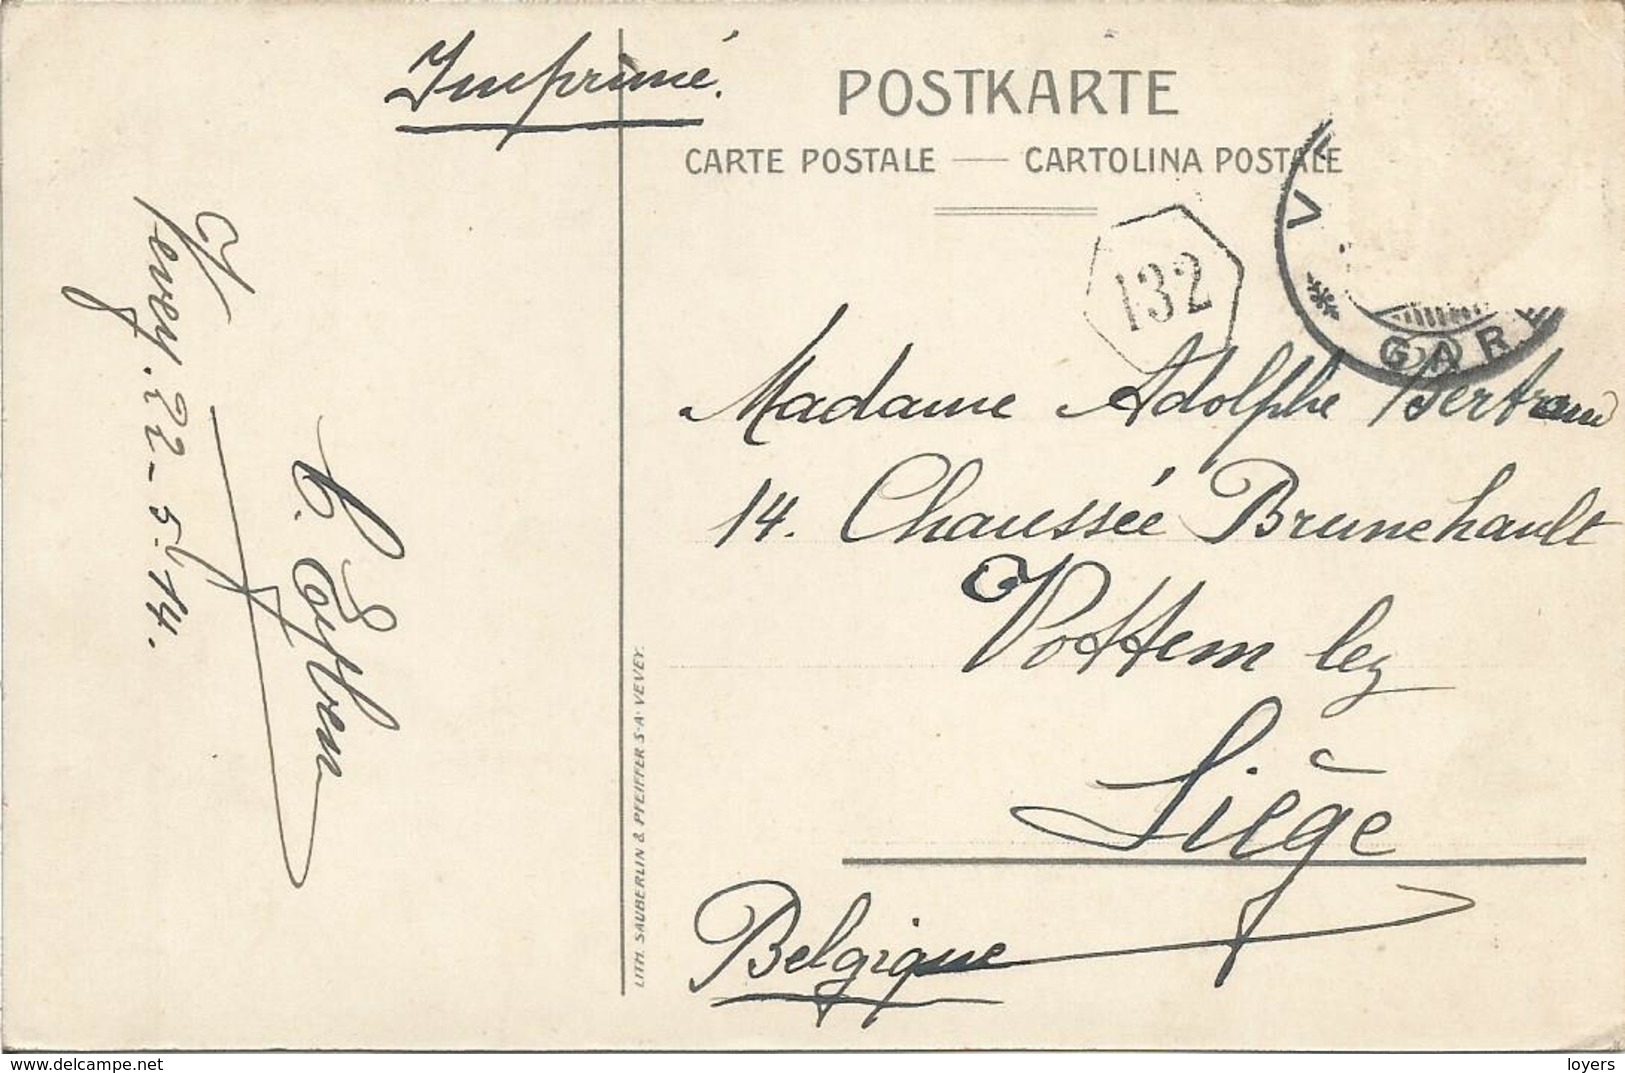 Imprimé.
POSTKARTE
CARTE POSTALE — CARTOLINA POSTALE
132
V
GARE
Madame Adolphe Bertrand
14. Chaussée Brunehault
Vottem lez
Liège
Belgique
Vevey. 22-5-14.
LITH. SAUBERLIN & PFEIFFER S-A· VEVEY.
www.delcampe.net
loyers